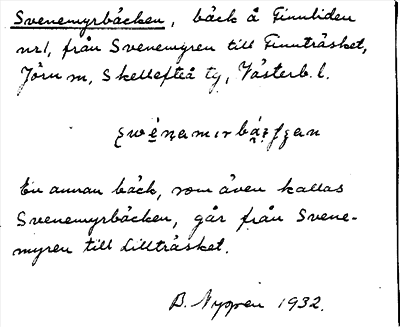 Svenemyrbäcken, bäck å Finnliden
nr1, från Svenemyren till Finnträsket,
Jörn sn, Skellefteå tg, Västerb. l.
En annan bäck, som även kallas
Svenemyrbäcken, går från Svene-
myren till Lillträsket.
B. Nygren 1932.